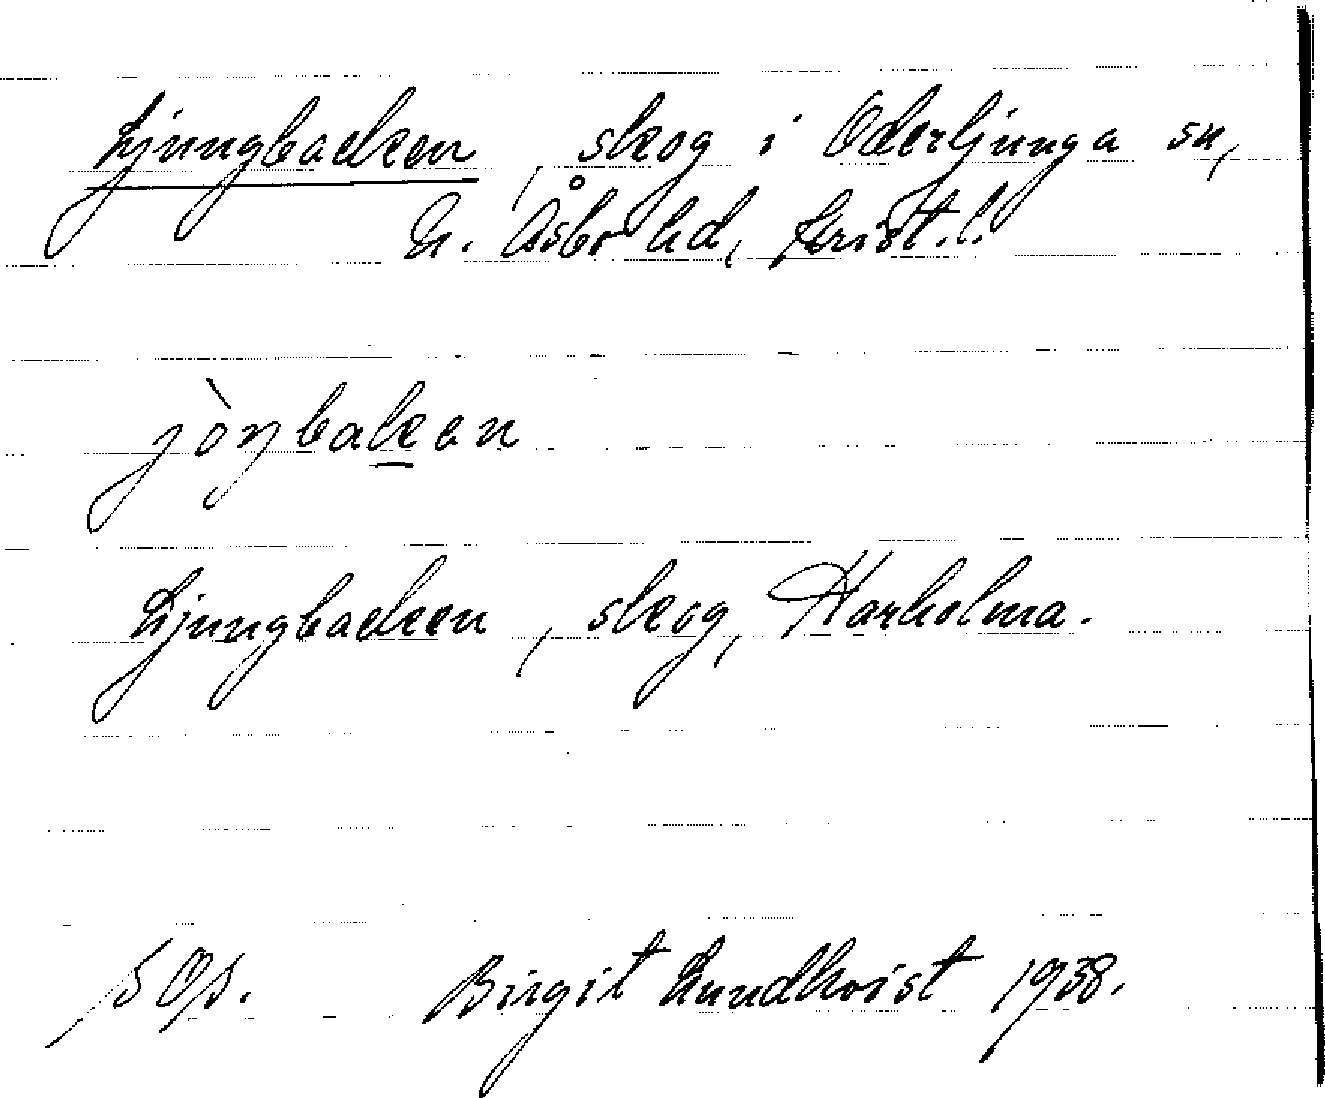 Ljungbacken, skog i Oderljunga sn,
N. Åsbo hd, Krist.l.
jòŋbakan
Ljungbacken, skog, Harholma.
Birgit Lundkvist 1938.